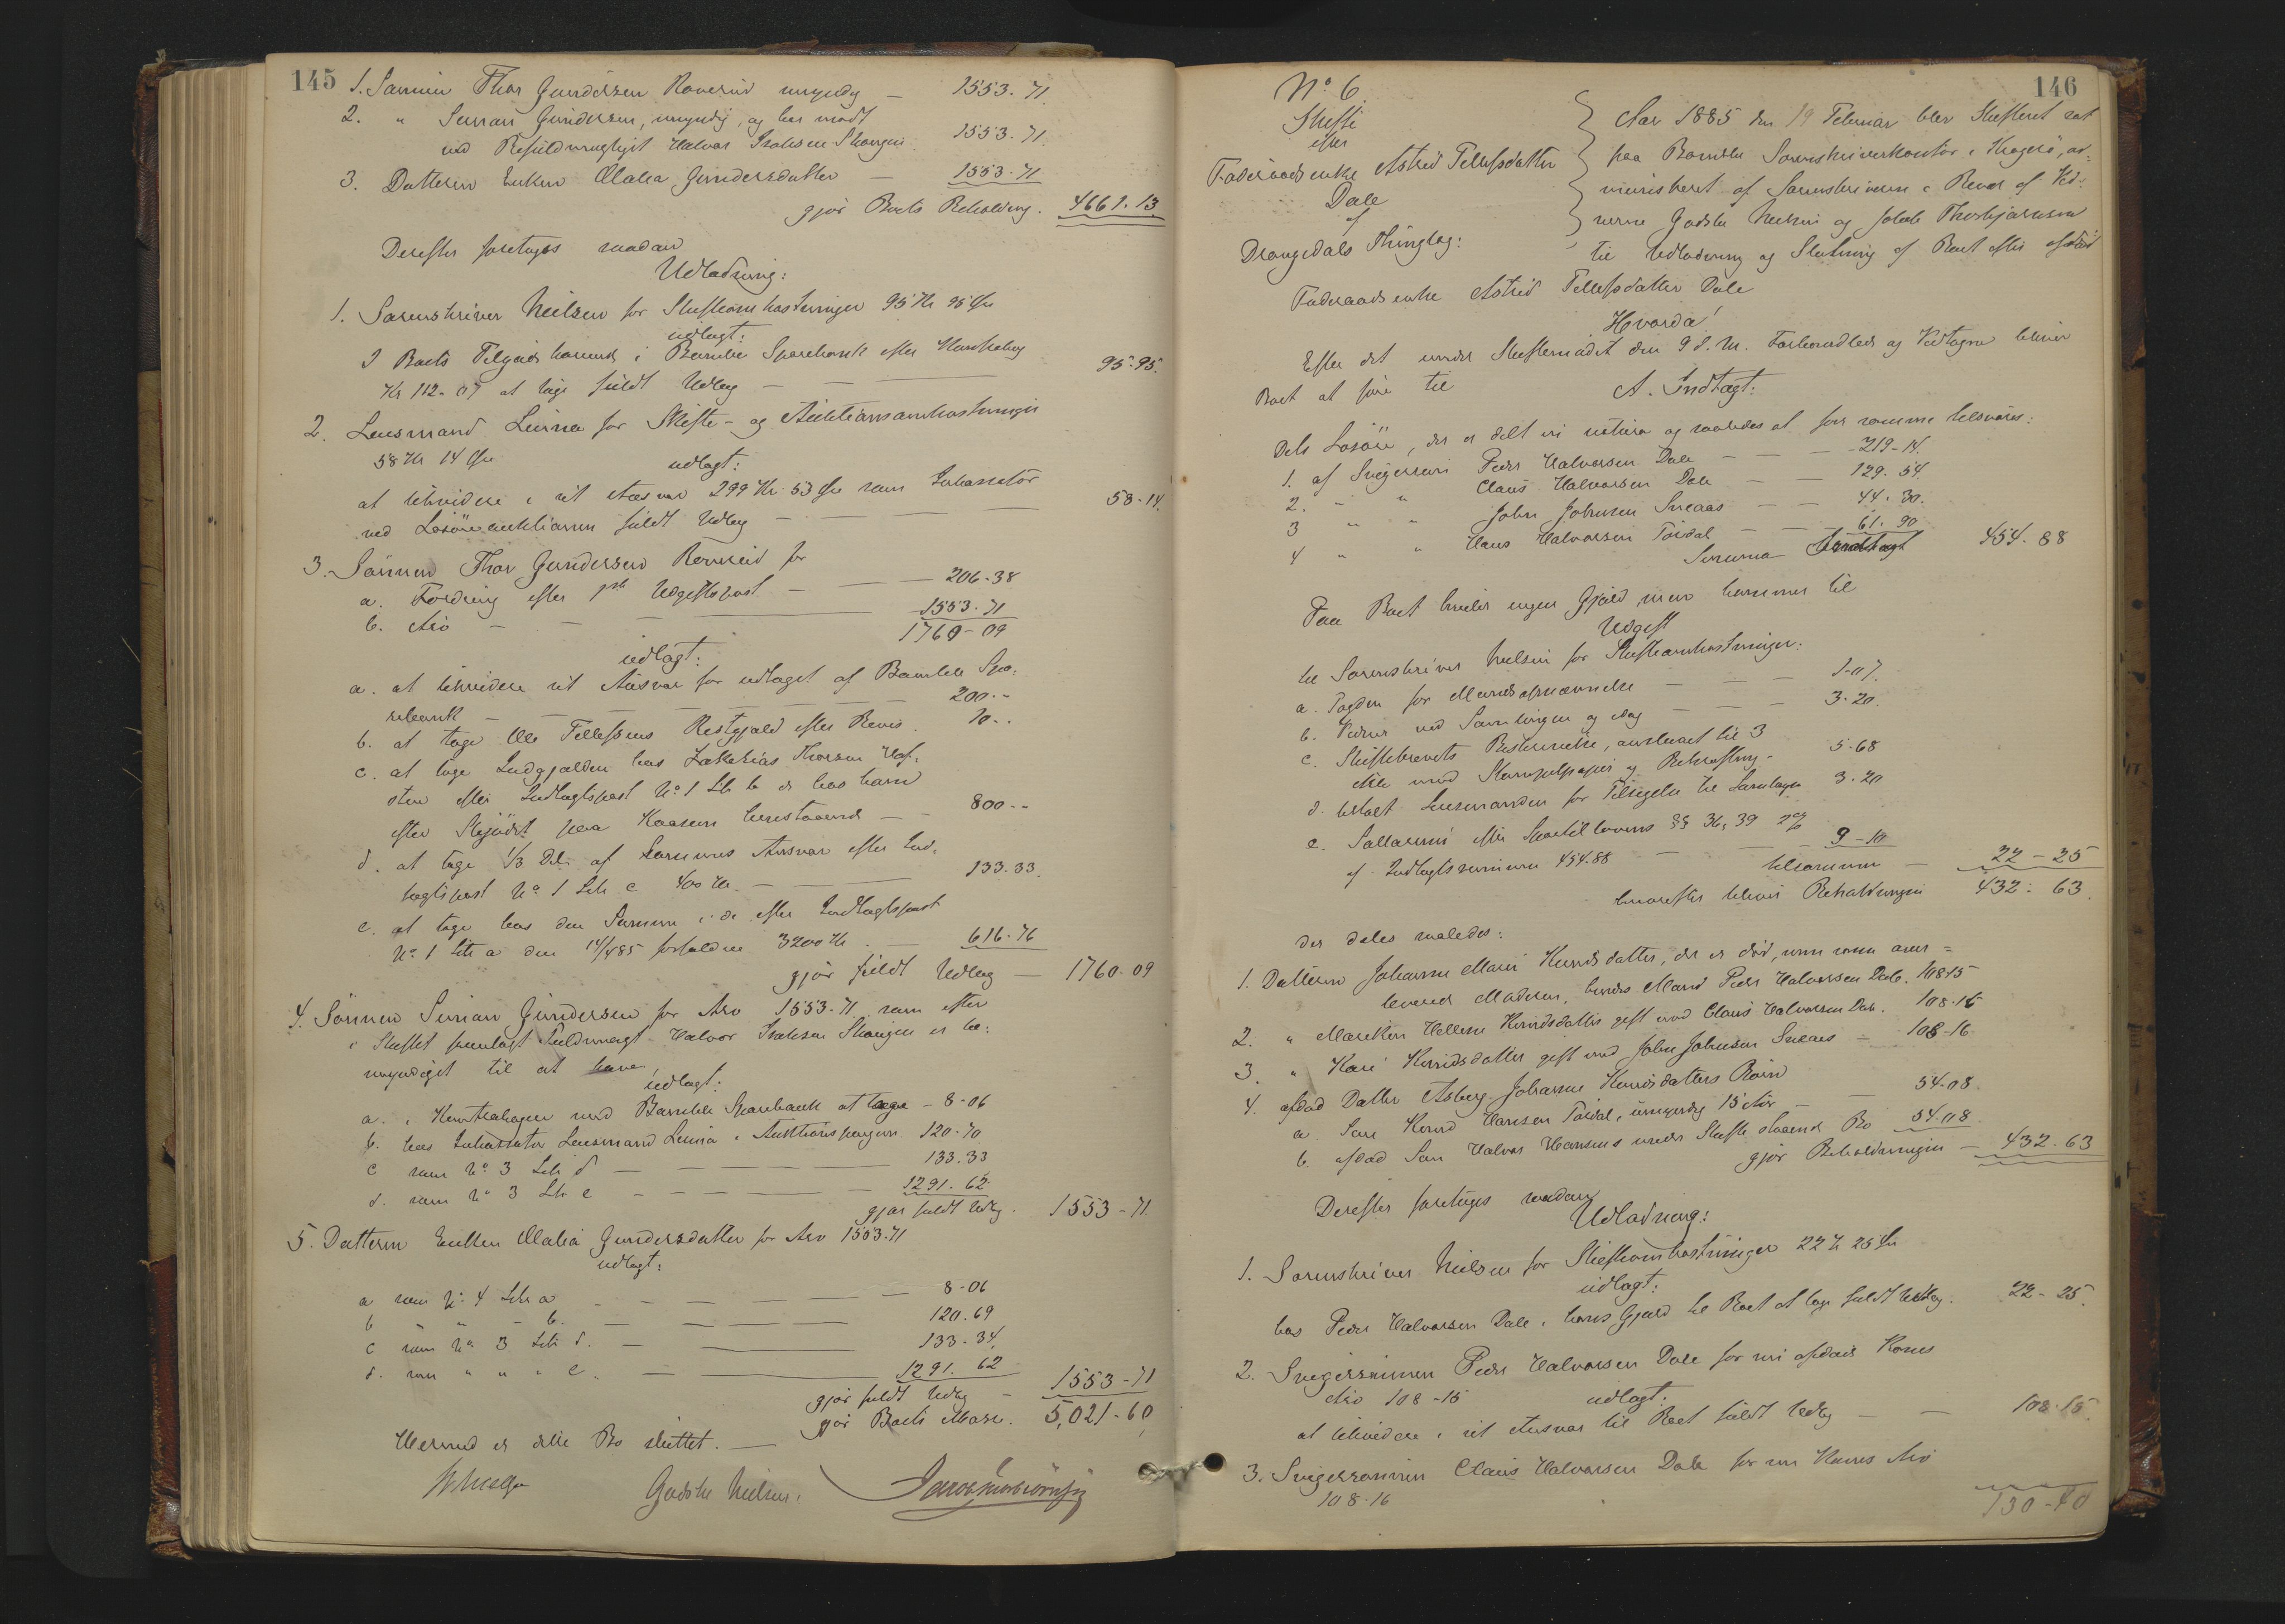 145
1. Sønnen Thor Gundersen Rønseid myndig — 1553. 71.
2. " Simon Gundersen, myndig, og har mødt
ved Befuldmægtiget Halvor Isaksen Skougen 1553. 71.
3. Datteren Enken Olalia Gundersdatter — 1553. 71
gjør Boets Beholdning. 4661. 13.
Derefter foretoges saadan
Udlodning:
1. Sorenskriver Nielsen for Skifteomkostninger 95 Kr 95 Øre
udlagt:
I Boets Tilgodehavende i Bamble Sparebank efter
Kr 112-07 at tage fuldt Udlæg — 95-95.
2. Lensmand Linna for Skifte- og Auktionsomkostninger
58 Kr 14 Øre
udlagt:
at likvidere i sit Ansvar 299 Kr 53 Øre som Inkassator
ved Løsøreauktionen fuldt Udlæg — 58-14.
3. Sønnen Thor Gundersen Rønseid for
a. Fordring efter 1ste Udgiftspost — 206-38
b. Arv — 1553. 71
1760-09
udlagt:
a. at likvidere sit Ansvar for udtaget af Bamble Spa-
rebank — 200--
b. at tage Ole Tellefsens Restgjæld efter Bevis 10..
c. at tage Indgjælden hos Zakarias Thorsen
efter Indtægtspost No 1 Litr b der hos ham
efter Skjødet paa Kaasen henstaaende — 800--
d. at tage 1/3 Del af Sammes Ansvar efter Ind-
tægtspost No 1 Litr c 400 Kr. — 133. 33.
e. at tage hos den Samme i de efter Indtægtspost
No 1 Litr a den 14/4 85 forfaldne 3200 Kr. — 616-76
gjør fuldt Udlæg — 1760-09
4. Sønnen Simon Gundersen for Arv 1553-71 som efter
i Skiftet fremlagt Fuldmagt Halvor Isaksen Skougen er be-
myndiget til at hæve,
udlagt:
a. i Kontrabogen med Bamble Sparebank at tage — 8-06
b. hos Inkassator Lensmand Linna i Auktionspengene 120-70
c som No 3 Litr d — 133. 33
d. som No 3 Litr e — 1291. 62
gjør fuldt Udlæg. 1553-71.
5. Datteren Enken Olalia Gundersdatter for Arv 1553-71
udlagt:
a som No 4 Litr a — 8-06
b " " - b. — 120. 69
c som No 3 Litr d. — 133-34
d. som " " " e. — 1291. 62
gjør fuldt Udlæg — 1553-71
gjør Boets Masse. 5,021-60
Hermed er dette Bo sluttet. —
Godske Nielsen.
146
No 6
Skifte
efter
Føderaadsenke Astrid Tellefsdatter
Dale
af
Drangedals Thinglag:
Aar 1885 den 19 Februar blev Skifteret sat
paa Bamble Sorenskriverkontor i Kragerø, ad-
ministreret af Sorenskriveren i Bivær af Vid-
nerne Godske Nielsen og Jakob Thorbjørnsen
til Udlodning og Slutning af Boet efter afdød
Føderaadsenke Astrid Tellefsdatter Dale
Hvorda!
Efter det under Skiftemødet den 9 d. M. Forhandlede og Vedtagne bliver
Boet at føre til
A. Indtægt:
Dets Løsøre, der er delt in natura og saaledes at for samme tilsvares:
1. af Svigersøn Peder Halvorsen Dale — 219-14.
2. - " Claus Halvorsen Dale — 129. 54
3 " " John Johnsen Sneaas — 44. 30.
4 " " Hans Halvorsen Tøisdal — 61. 90
Summa Indtægt 454. 88
Paa Boet hviler ingen Gjæld, men kommer til
Udgift
til Sorenskriver Nielsen for Skifteomkostninger:
a. Dagden for Mandsopnævnelse — 1-07.
b. Vidner ved Samlingen og idag — 3-20.
c. Skiftebrevets Beskrivelse, anslaaet til 3
Ark med Stempelpapir og Bekræftning — 5-68
d. betalt Lensmanden for Tilsigelse til Samlingen 3-20
e. Sallarium efter Sportellovens §§ 36, 39 2%
af Indtægtssummen 454.88 — 9-10
tilsammen — 22-25
hvorefter bliver Beholdningen 432-63.
der deles saaledes:
1. Datteren Johanne Marie Knudsdatter, der er død, men som over-
levende Moderen, hendes Mand Peder Halvorsen Dale. 108-15
2. " Mareken Hellene Knudsdatter gift med Claus Halvorsen Dale. 108-16
3. " Kari Knudsdatter gift med John Johnsen Sneaas — 108-16
4. afdød Datter Asberg Johanne Knudsdatters Børn
a. Søn Knud Hansen Tøisdal, umyndig 15 Aar — 54-08
b. afdød Søn Halvor Hansens under Skifte staaende Bo 54-08
gjør Beholdningen — 432. 63
Derefter foretoges saadan
Udlodning:
1. Sorenskriver Nielsen for Skifteomkostninger 22 Kr 25 Øre
udlagt:
hos Peder Halvorsen Dale i hans Gjæld til Boet at tage fuldt Udlæg. 22-25.
2. Svigersønnen Peder Halvorsen Dale for sin afdøde Kones
Arv 108-15
udlagt:
at likvidere i sit Ansvar til Boet fuldt Udlæg — 108-15.
3. Svigersønnen Claus Halvorsen Dale for sin Kones Arv
108-16
130-40